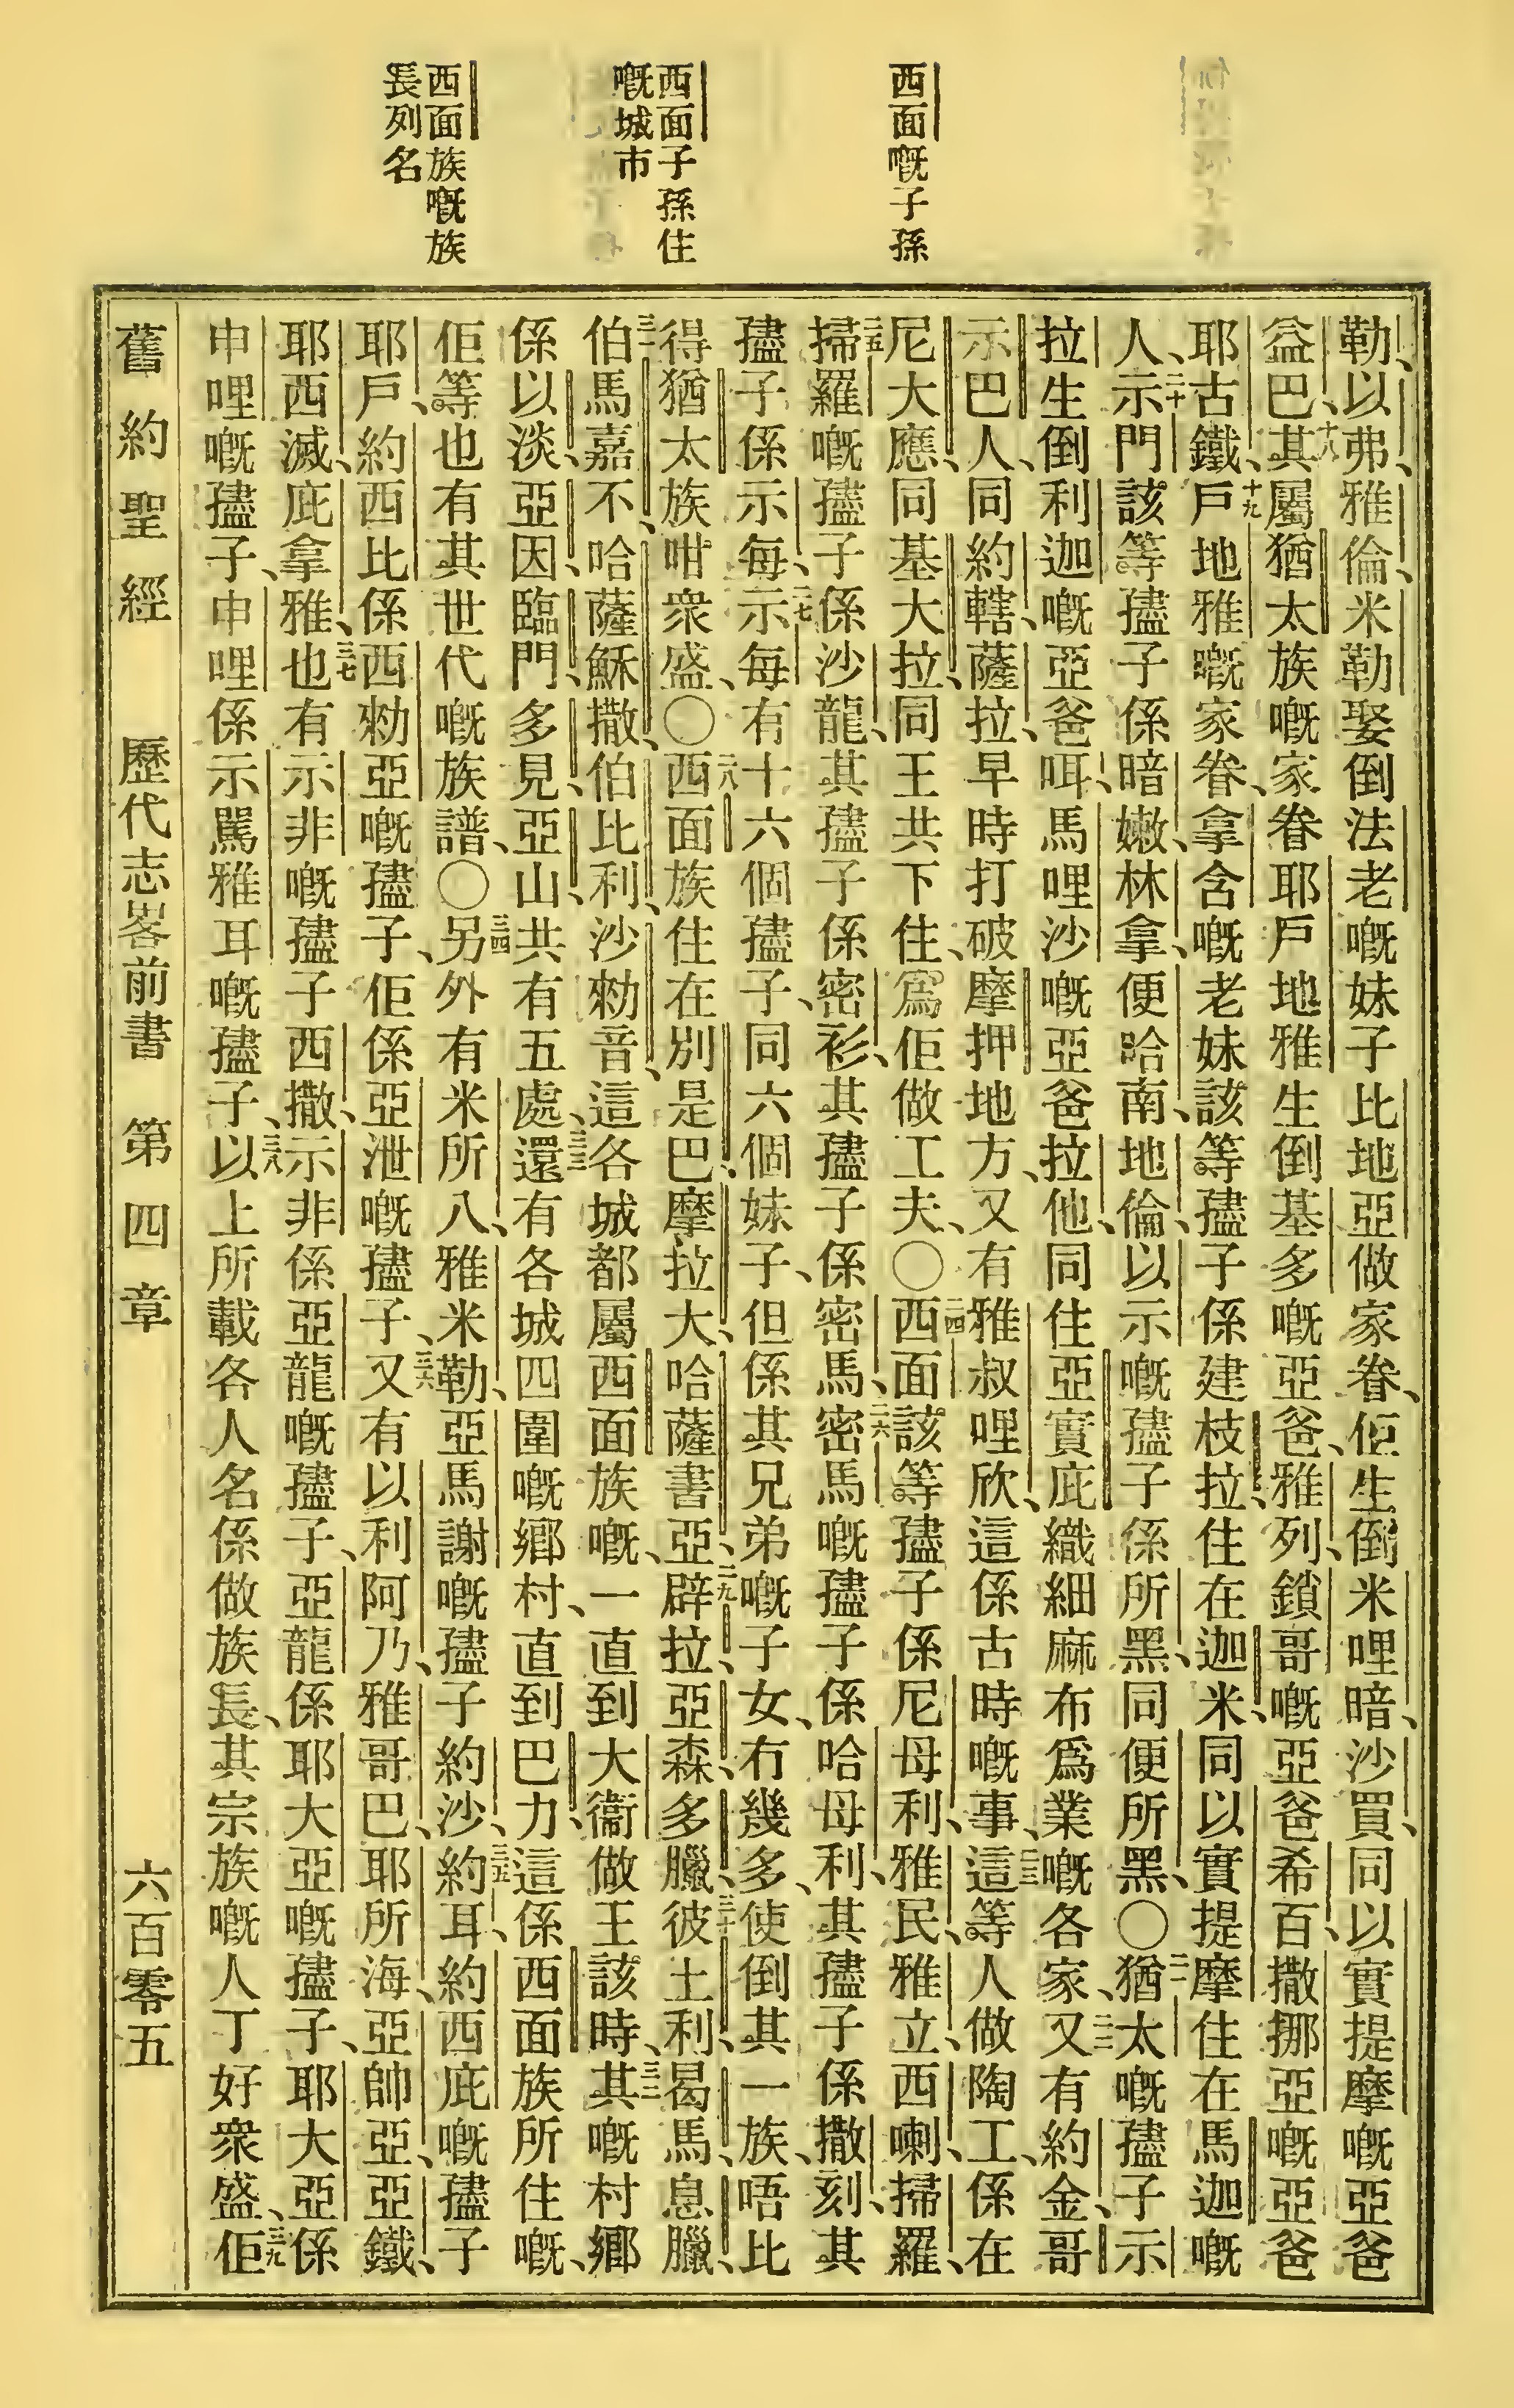 西面嘅子孫
西面子孫住
嘅城市
西面族嘅族
長列名
勒、以弗、雅倫、米勒娶倒法老嘅妹子比地亞做家眷、佢生倒米哩暗、沙買、同以實提摩嘅亞爸
益巴、十八其屬猶太族嘅家眷耶戶地雅生倒基多嘅亞爸、雅列、鎖哥嘅亞爸希百、撒挪亞嘅亞爸
耶古鐵、十九戶地雅嘅家眷、拿含嘅老妹該等孻子係建枝拉、住在迦米、同以實提摩住在馬迦嘅
人、二十示門該等孻子係暗嫩、林拿、便哈南、地倫、以示嘅孻子係所黑、同便所黑、〇二一猶太嘅孻子示
拉生倒利迦嘅亞爸咡、馬哩沙嘅亞爸拉他、同住亞實庇織細麻布爲業嘅各家、二二又有約金、哥
示巴人、同約轄、薩拉、早時打破摩押地方、又有雅叔哩欣、這係古時嘅事、二三這等人做陶工、係在
尼大應、同基大拉、同王共下住、爲佢做工夫、〇二四西面該等孻子係尼母利、雅民、雅立、西喇、掃羅、
二五掃羅嘅孻子係沙龍、其孻子係密衫、其孻子係密馬、二六密馬嘅孻子係哈母利、其孻子係撒刻、其
孻子係示每、二七示每有十六個孻子、同六個妹子、但係其兄弟嘅子女、冇幾多、使倒其一族、唔比
得猶太族咁衆盛、〇二八西面族住在別是巴、摩拉大、哈薩書亞、二九辟拉、亞森、多臘、三十彼土利、曷馬、息臘、
三一伯馬嘉不、哈薩穌撒、伯比利、沙勑音、這各城都屬西面族嘅、一直到大衞做王該時、三二其嘅村鄉
係以淡、亞因、臨門、多見、亞山、共有五處、三三還有各城四圍嘅鄉村、直到巴力、這係西面族所住嘅、
佢等也有其世代嘅族譜、〇三四另外有米所八、雅米勒、亞馬謝嘅孻子約沙、三五約耳、約西庇嘅孻子
耶戶、約西比係西勑亞嘅孻子、佢係亞泄嘅孻子、三六又有以利阿乃、雅哥巴、耶所海、亞帥亞、亞鐵、
耶西滅、庇拿雅、也三七有示非嘅孻子西撒、示非係亞龍嘅孻子、亞龍係耶大亞嘅孻子、耶大亞係
申哩嘅孻子、申哩係示罵雅耳嘅孻子、三八以上所載各人名係做族長、其宗族嘅人丁好衆盛、三九佢
舊約聖經 歷代志畧前書 第四章 六百零五